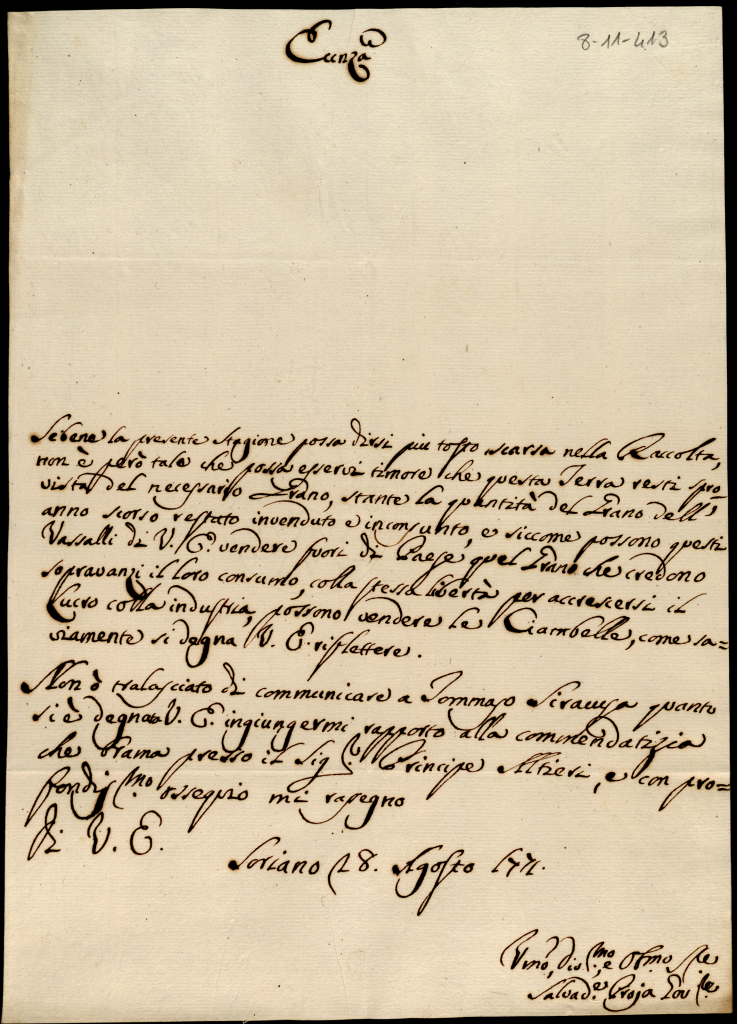 8-11-413
Ecc.nza
Sebene la presente Stagione possa dirsi piu tosto scarsa nella Raccolta,
non è però tale che possa esservi timore che questa Terra resti spro=
vista del necessario Grano, stante la quantità del Grano dell'
anno scorso restato invenduto e inconsunto, e siccome possono questi
Vassalli di V. E. vendere fuori di Paese quel Grano che credono
sopravanzi il loro consumo, colla stessa libertà per accrescersi il
Lucro colla industria, possono vendere le Ciambelle, come sa=
viamente si degna V. E. riflettere.
Non ò tralasciato di communicare a Tommaso Siracusa quanto
si è degnata V. E. ingiungermi rapporto alla commendatizia
che brama presso il Sig.r Principe Altieri, e con pro=
fondis.mo ossequio mi rasegno
di V. E.
Soriano 28. Agosto 1771.
Umo, dis.mo, e Obmo S.re
Salvad.e Proja Gov.re